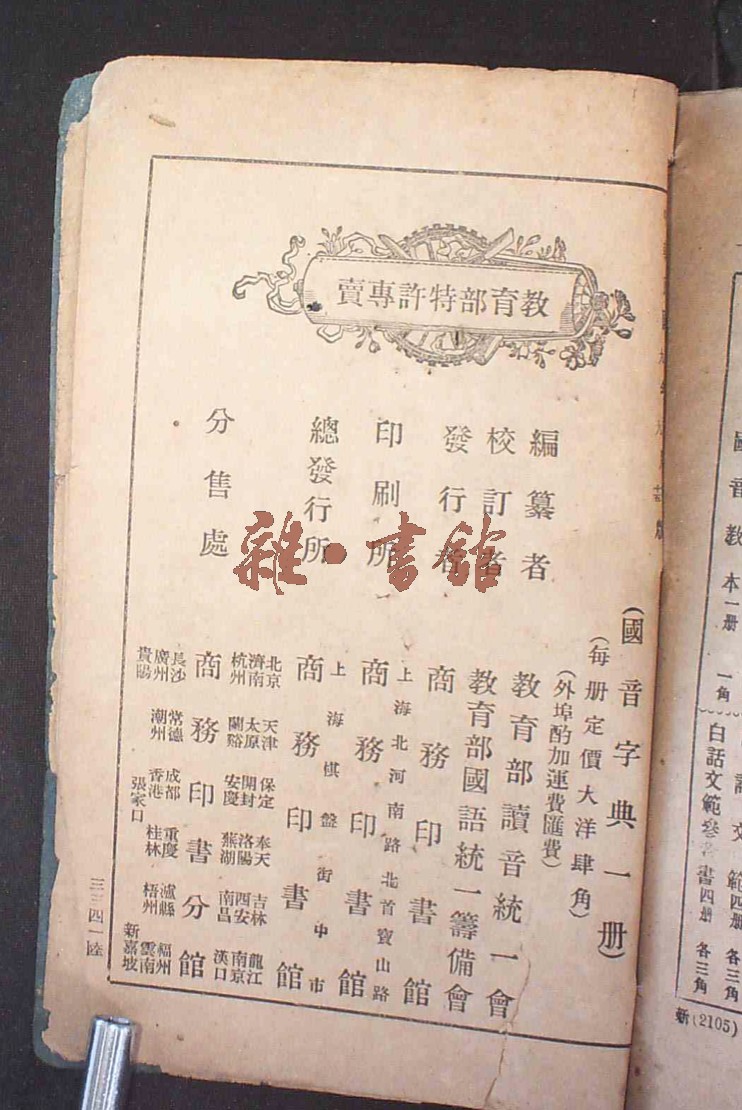 教育部特許專賣
(國音字典一册)
(每册定價大洋肆角)
(外埠酌加運費匯費)
編纂者 教育部讀音統一會
校訂者 教育部國語統一籌備會
發行者 商務印書館
印刷所 上海北河南路北首寶山路 商務印書館
總發行所 上海棋盤街中市 商務印書館
分售處 商務印書分館
北京 天津 保定 奉天 吉林 龍江
濟南 太原 開封 洛陽 西安 南京
杭州 蘭谿 安慶 蕪湖 南昌 漢口
長沙 常德 成都 重慶 瀘縣 福州
廣州 潮州 香港 桂林 梧州 雲南
貴陽 張家口 新嘉坡
雜·書館
國音教本一册 一角
白話文範四册 各三角
白話文範參考書四册 各三角
新(2105)